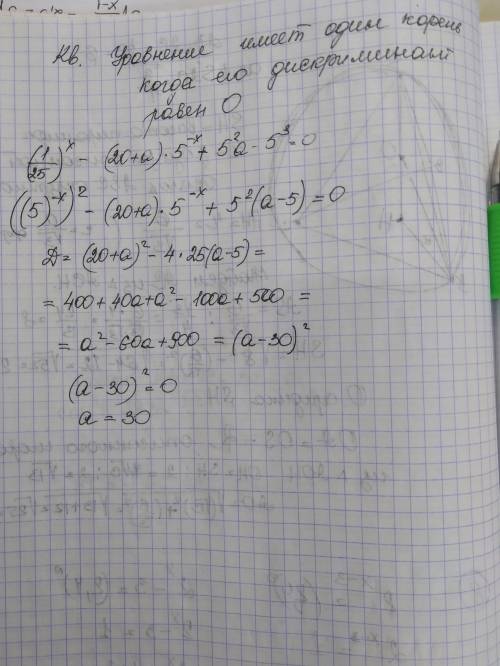 Кв. Уравнение имеет один корень
когда его дискриминант
равен 0
(1/25)^x - (20+a)·5^-x + 5^2a - 5^3 = 0
((5)^-x)^2 - (20+a)·5^-x + 5^2(a-5) = 0
D = (20+a)^2 - 4·25(a-5) =
= 400 + 40a + a^2 - 100a + 500 =
= a^2 - 60a + 900 = (a-30)^2
(a-30)^2 = 0
a = 30